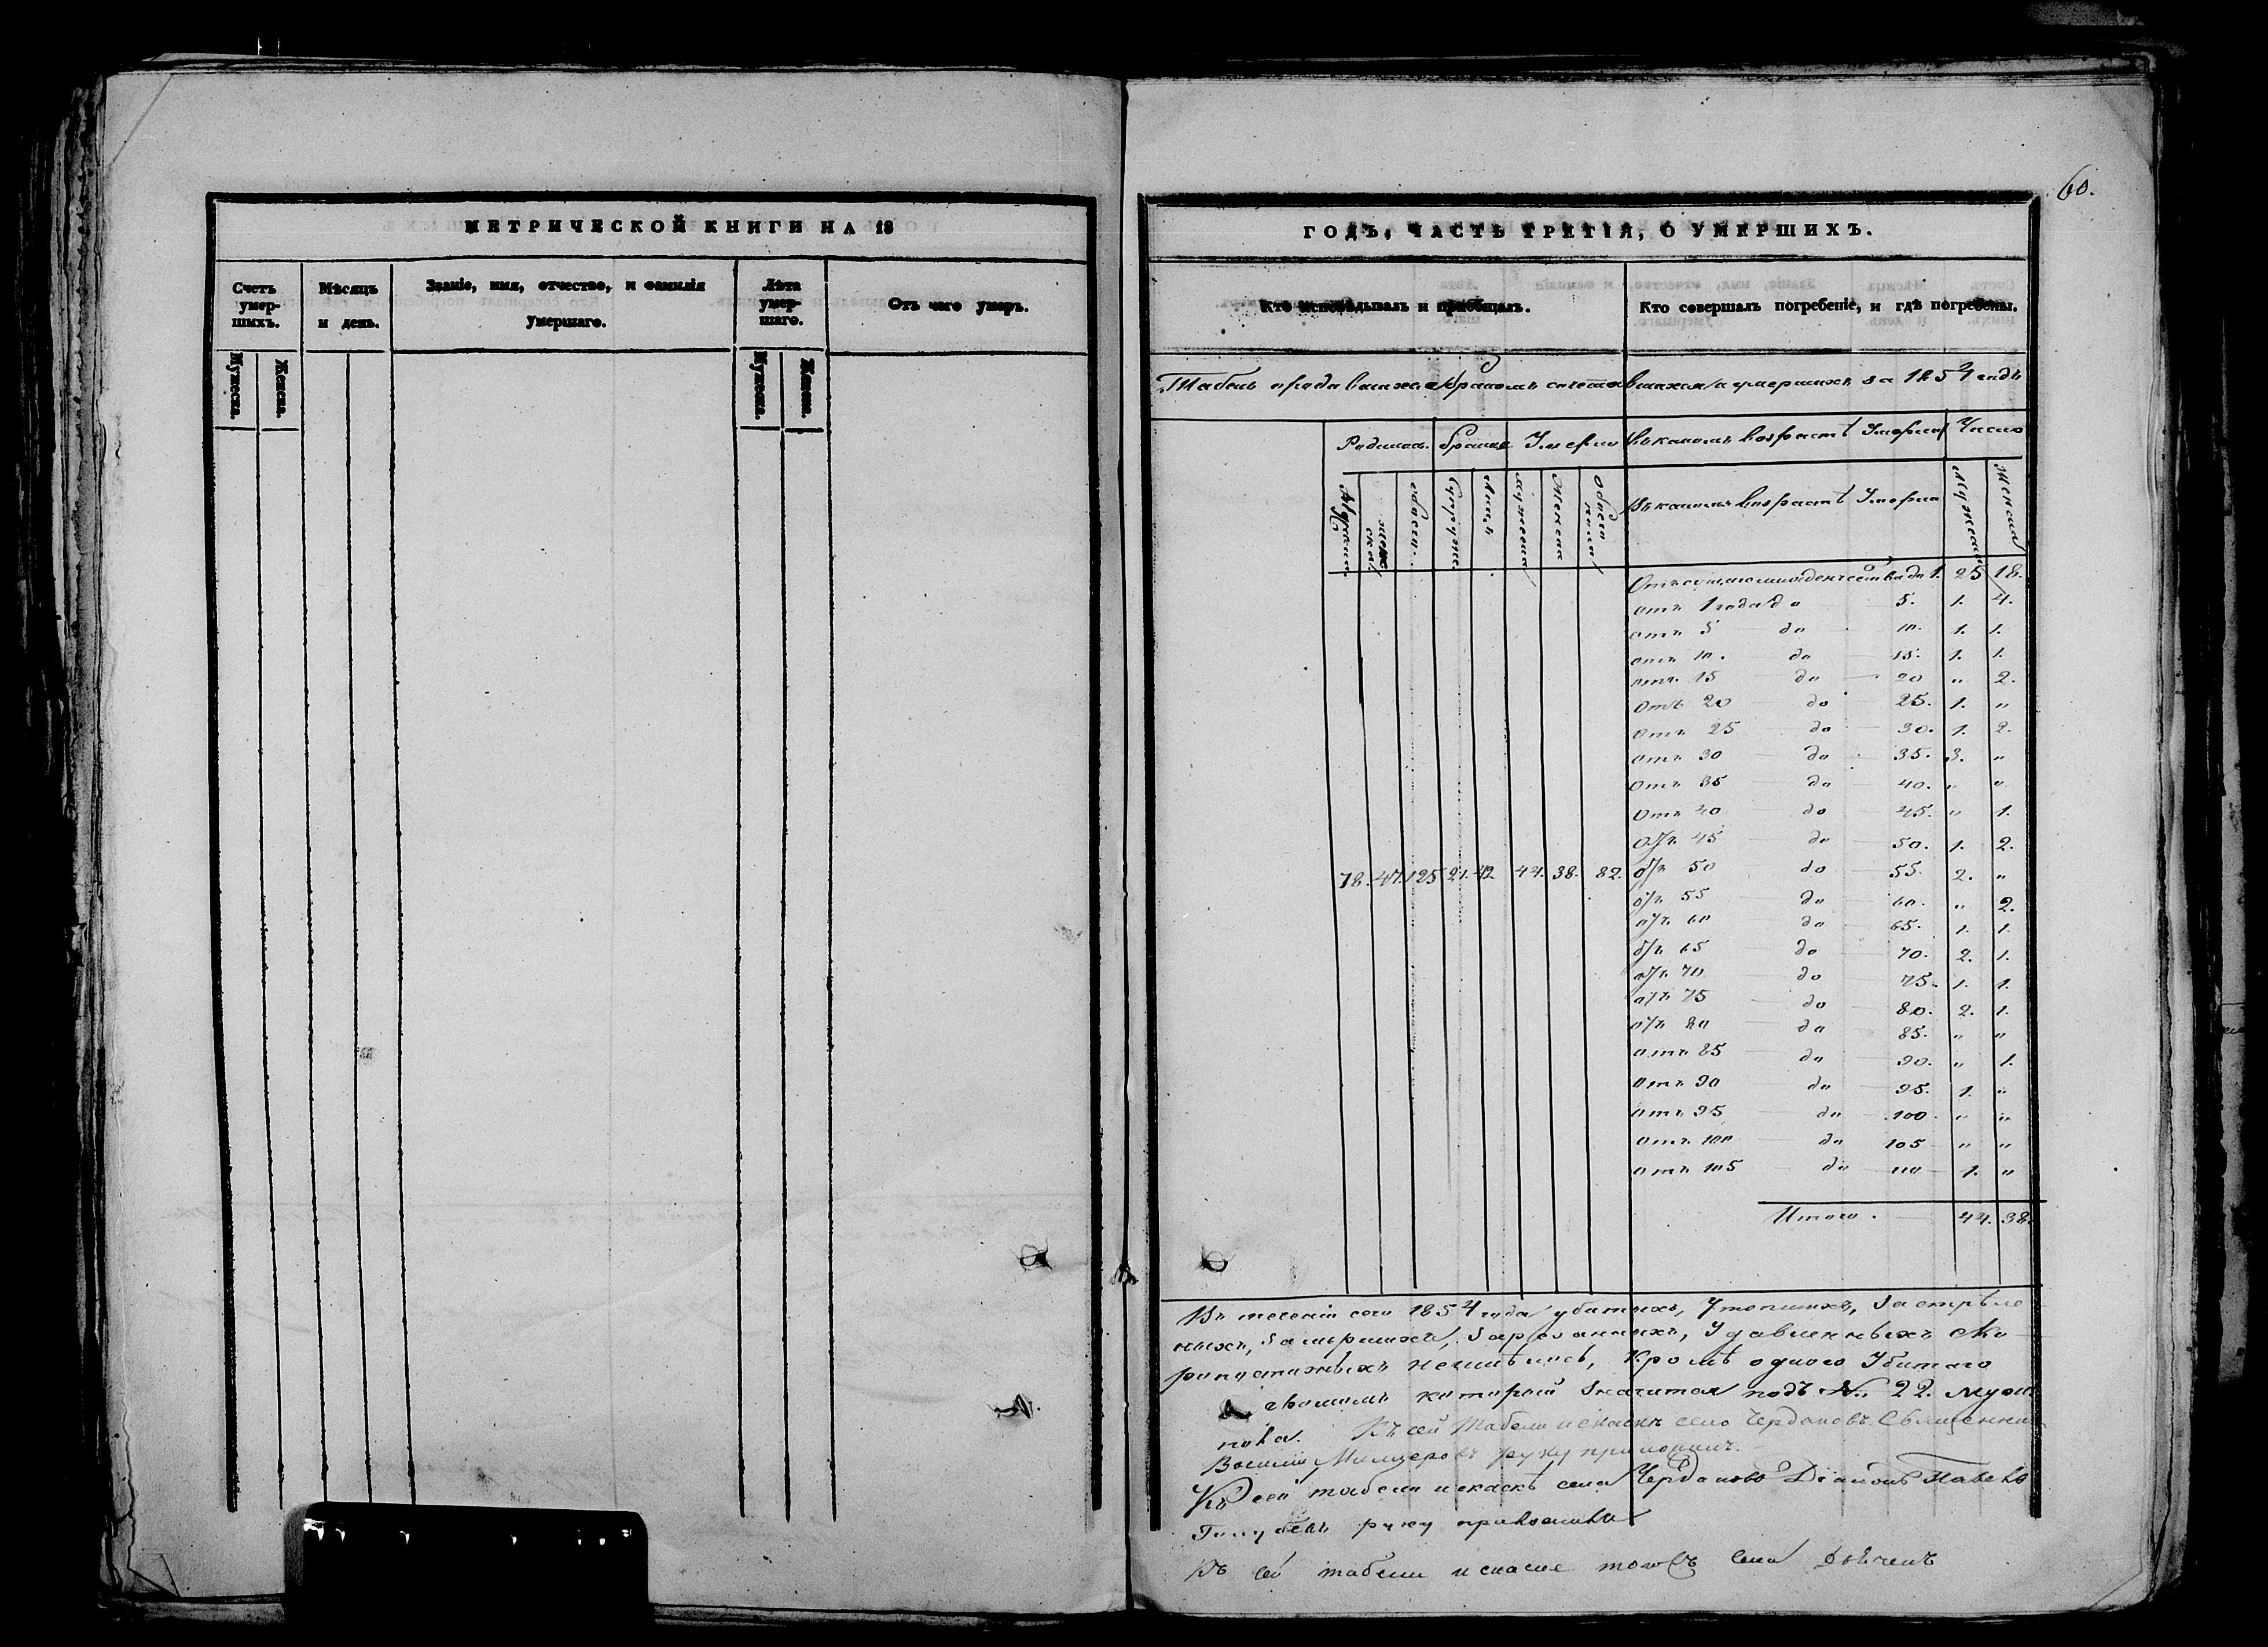 60.
МЕТРИЧЕСКОЙ КНИГИ НА 18
Счетъ умер-шихъ.
Мѣсяцъ и день.
Званіе, имя, отчество, и фамилія умершаго.
Лѣта умер-шаго.
Отъ чего умеръ.
Мужеска.
Женска.
Мужеска.
Женска.
ГОДЪ, ЧАСТЬ ТРЕТІЯ, О УМЕРШИХЪ.
Кто исповѣдывалъ и пріобщалъ.
Кто совершалъ погребеніе, и гдѣ погребены.
Табель о родившихся бракомъ сочетавшихся и умершихъ за 1854 годъ
Родилось. браковъ Умерло Въ какомъ возрастѣ Умерли Число
Въ какомъ возрастѣ Умерли
Мужеска
женска
обоего
Супруж.
Лицъ
Мужеска
Женска
Обоего пола
Мужеска
Женска
Отъ самаго младенчества до 1. 25 18.
отъ 1 года до 5. 1. 4.
отъ 5 до 10. 1. 1.
отъ 10. до 15. 1. 1.
отъ 15 до 20 " 2.
Отъ 20 до 25. 1. "
Отъ 25 до 30. 1. 2.
отъ 30 до 35. 3. "
Отъ 35 до 40. " "
Отъ 40 до 45. " 1.
Отъ 45 до 50. 1. 2.
78. 47. 125 21. 42 44. 38. 82.
отъ 50 до 55. 2. "
отъ 55 до 60. " 2.
отъ 60 до 65. 1. 1.
отъ 65 до 70. 2. 1.
отъ 70 до 75. 1. 1.
отъ 75 до 80. 2. 1.
отъ 80 до 85. " "
отъ 85 до 90. " 1.
отъ 90 до 95. 1. "
отъ 95 до 100. " "
отъ 100 до 105 " "
отъ 105 до 110 1. "
Итого. 44. 38.
Въ теченіи сего 1854 года убитыхъ, Утопшихъ, Застрѣле
ныхъ, Замершихъ, Зарезанныхъ, Удавленныхъ Ско
ропостижныхъ неимѣлось, Кромѣ одного Убитаго
который значится подъ №. 22. муж.
пола. Къ сей Табели и сказкѣ села Чердаковъ Священник
Василій руку приложилъ.
Къ сей табели и сказкѣ села Чердаково Діаконъ Павелъ
руку приложилъ
Къ сей табели и сказке тогожъ села Дьячекъ